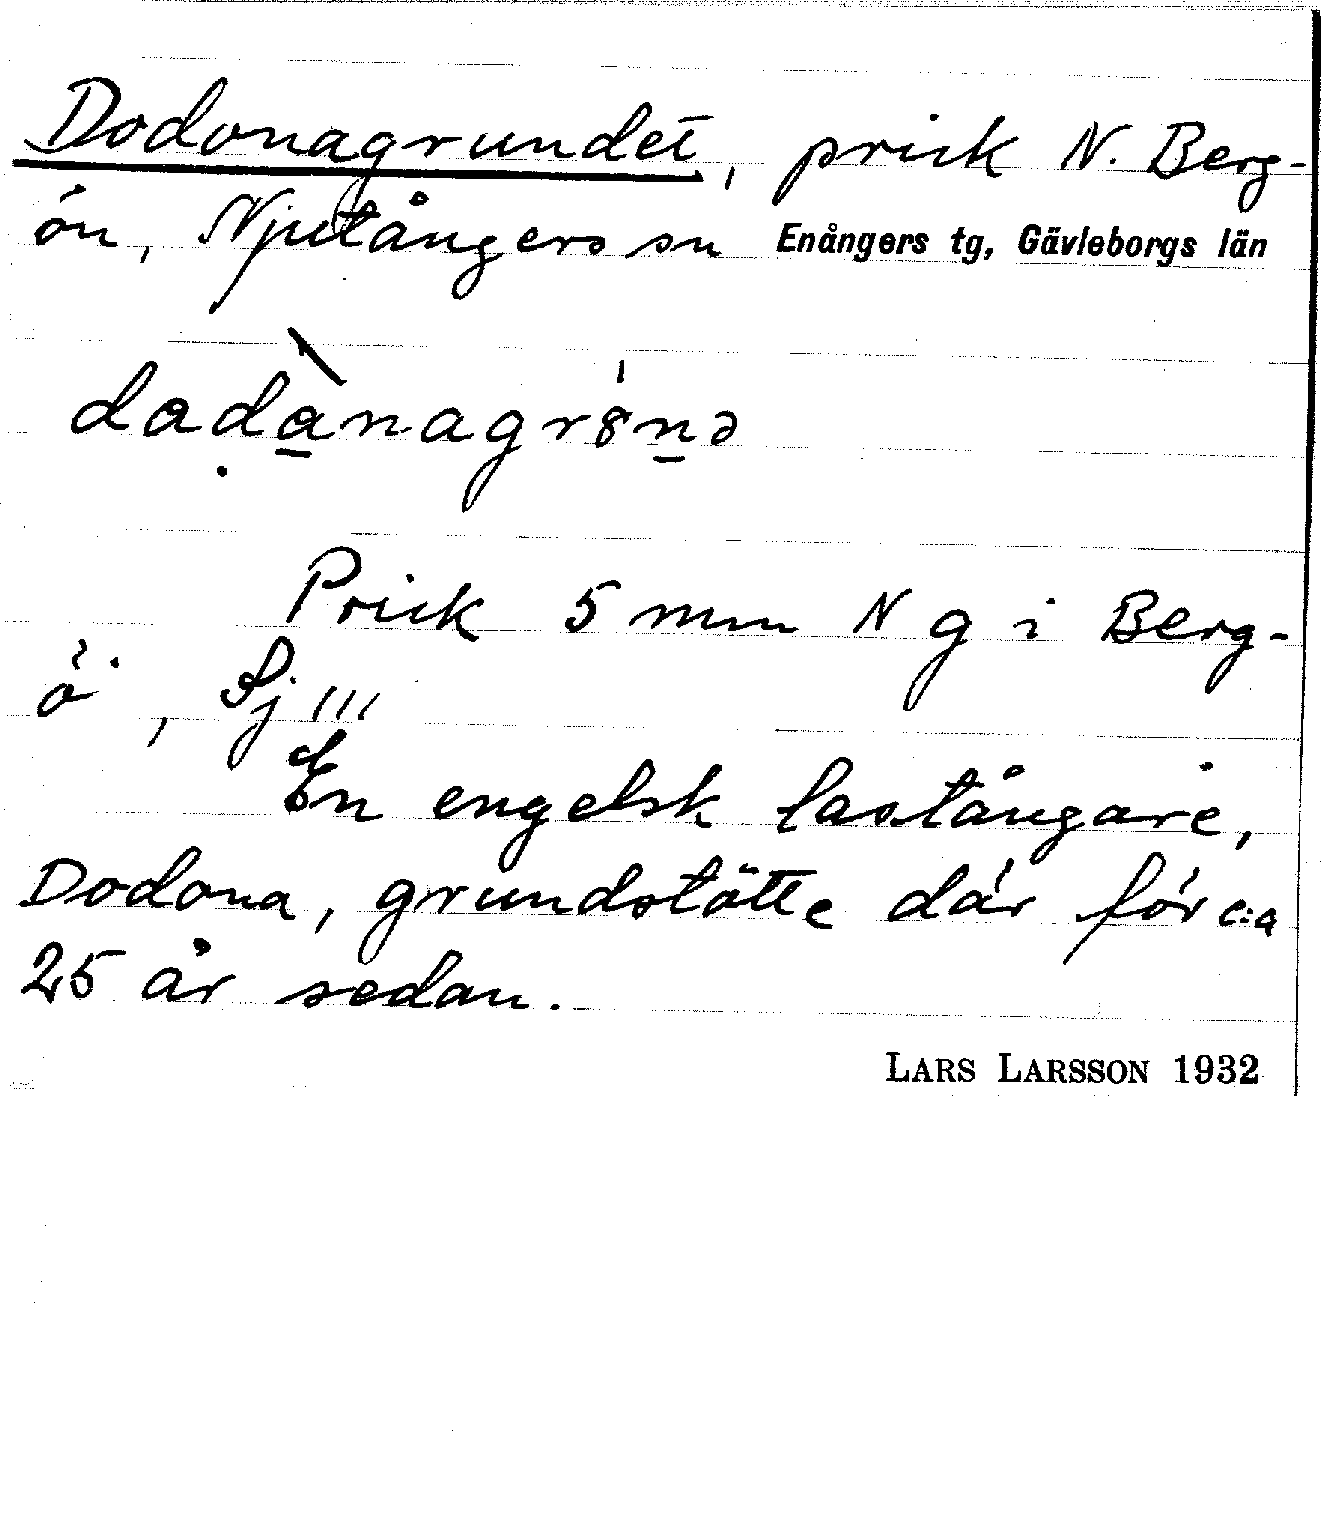 Dodonagrundet, prick N. Berg-
ön, Njutångers sn Enångers tg, Gävleborgs län
Prick 5 mm N g i Berg-
ö, Sj 111
En engelsk lastångare,
Dodona, grundstötte där för c:a
25 år sedan.
LARS LARSSON 1932